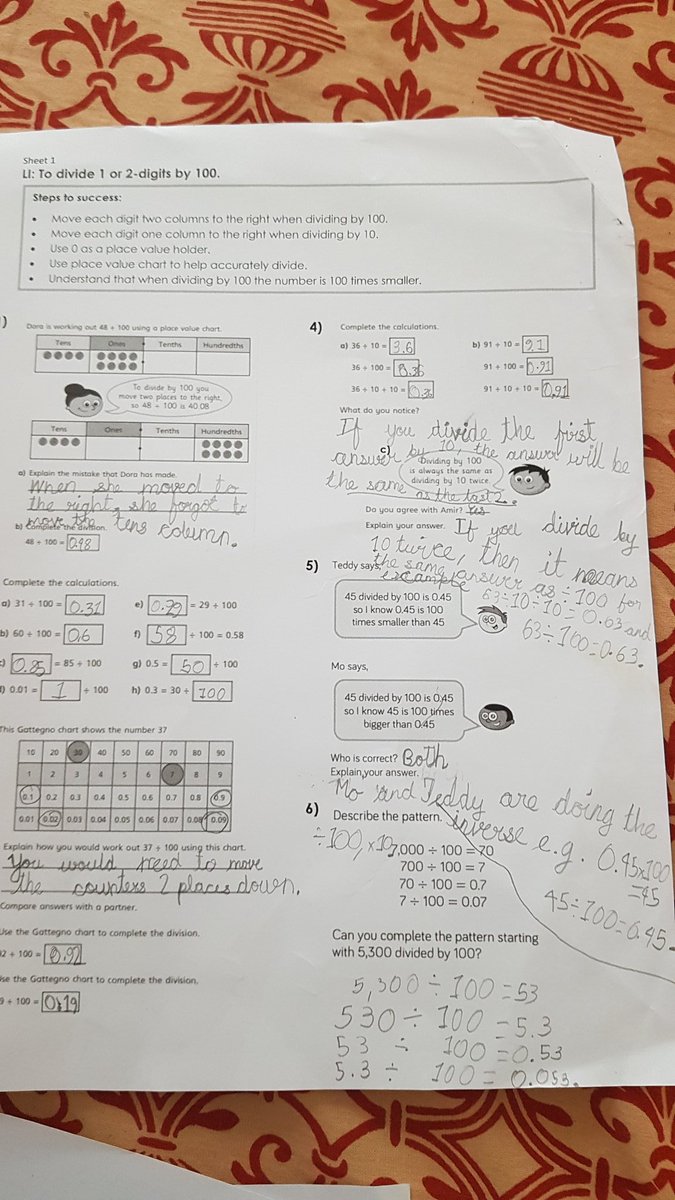 Sheet 1
LI: To divide 1 or 2-digits by 100.
Steps to success:
• Move each digit two columns to the right when dividing by 100.
• Move each digit one column to the right when dividing by 10.
• Use 0 as a place value holder.
• Use place value chart to help accurately divide.
• Understand that when dividing by 100 the number is 100 times smaller.
)
Dora is working out 48 ÷ 100 using a place value chart.
Tens Ones Tenths Hundredths
To divide by 100 you
move two places to the right,
so 48 ÷ 100 is 40.08
Tens Ones Tenths Hundredths
a) Explain the mistake that Dora has made.
When she moved to
the right, she forgot to
move the tens column.
b) Complete the division.
48 ÷ 100 = 0.48
Complete the calculations.
a) 31 ÷ 100 = 0.31 e) 0.29 = 29 ÷ 100
b) 60 ÷ 100 = 0.6 f) 58 ÷ 100 = 0.58
) 0.85 = 85 ÷ 100 g) 0.5 = 50 ÷ 100
) 0.01 = 1 ÷ 100 h) 0.3 = 30 ÷ 100
This Gattegno chart shows the number 37
10 20 30 40 50 60 70 80 90
1 2 3 4 5 6 7 8 9
0.1 0.2 0.3 0.4 0.5 0.6 0.7 0.8 0.9
0.01 0.02 0.03 0.04 0.05 0.06 0.07 0.08 0.09
Explain how you would work out 37 ÷ 100 using this chart.
You would need to move
the counters 2 places down.
Compare answers with a partner.
Use the Gattegno chart to complete the division.
92 ÷ 100 = 0.92
Use the Gattegno chart to complete the division.
9 ÷ 100 = 0.19
4) Complete the calculations.
a) 36 ÷ 10 = 3.6 b) 91 ÷ 10 = 9.1
36 ÷ 100 = 0.36 91 ÷ 100 = 0.91
36 ÷ 10 ÷ 10 = 0.36 91 ÷ 10 ÷ 10 = 0.91
What do you notice?
If you divide the first
answer by 10, the answer will be
the same as the last 2.
c) Dividing by 100
is always the same as
dividing by 10 twice.
Do you agree with Amir? Yes
Explain your answer. If you divide by
10 twice, then it means
the same answer as ÷100 for
example 63÷10÷10=0.63 and
63÷100=0.63.
5) Teddy says,
45 divided by 100 is 0.45
so I know 0.45 is 100
times smaller than 45
Mo says,
45 divided by 100 is 0.45
so I know 45 is 100 times
bigger than 0.45
Who is correct? Both
Explain your answer.
Mo and Teddy are doing the
inverse e.g. 0.45x100
=45
45÷100=0.45.
6) Describe the pattern.
÷100, x10
7,000 ÷ 100 = 70
700 ÷ 100 = 7
70 ÷ 100 = 0.7
7 ÷ 100 = 0.07
Can you complete the pattern starting
with 5,300 divided by 100?
5,300 ÷ 100 = 53
530 ÷ 100 = 5.3
53 ÷ 100 = 0.53
5.3 ÷ 100 = 0.053.